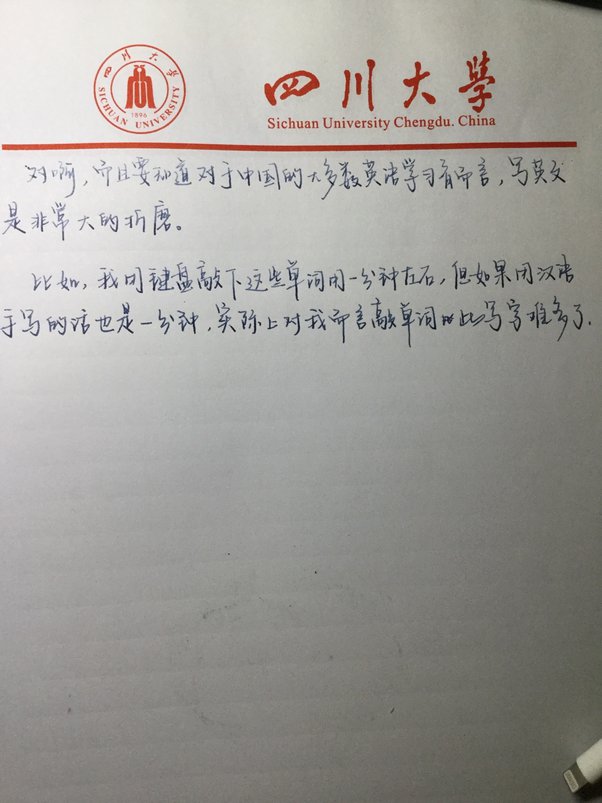 四川大学
SICHUAN UNIVERSITY
1896
四川大學
Sichuan University Chengdu. China
对啊，而且要知道对于中国的大多数英语学习者而言，写英文
是非常大的折磨。
比如，我用键盘敲下这些单词用一分钟左右，但如果用汉语
手写的话也是一分钟，实际上对我而言敲单词比写字难多了.